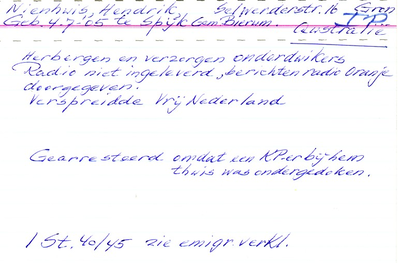 Nienhuis, Hendrik, Selwerderstr. 16 Gron
Geb. 4.7-05 te Spijk Gem. Bierum.
Australie
Herbergen en verzorgen onderduikers
Radio niet ingeleverd, berichten radio Oranje
doorgegeven.
Verspreidde Vrij Nederland
Gearresteerd omdat een KP-er bij hem
thuis was ondergedoken.
1 St. 40/45 zie emigr. verkl.